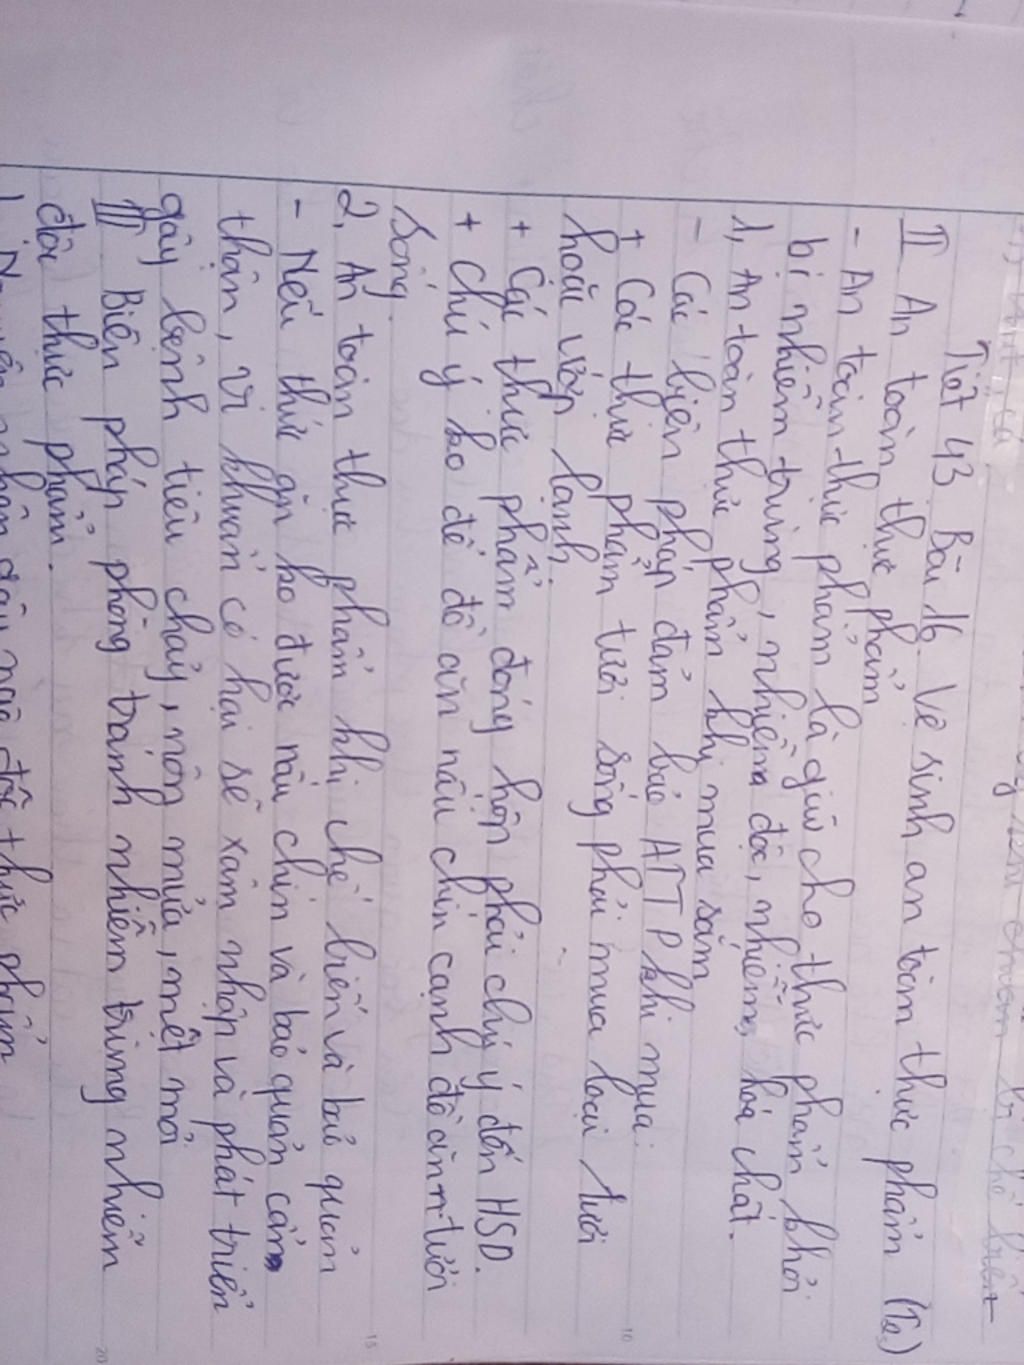 Tiết 43 Bài 16 Vệ sinh an toàn thực phẩm (T2)
II An toàn thực phẩm
- An toàn thực phẩm là giữ cho thực phẩm khỏi
bị nhiễm trùng, nhiễm độc, nhiễm hóa chất.
1, An toàn thực phẩm khi mua sắm
- Các biện pháp đảm bảo ATTP khi mua:
+ Các thực phẩm tươi sống phải mua loại tươi
hoặc ướp lạnh.
+ Các thực phẩm đóng hộp phải chú ý đến HSD.
+ Chú ý ko để đồ ăn nấu chín cạnh đồ ăn tươi
sống.
2, An toàn thực phẩm khi chế biến và bảo quản
- Nếu thức ăn ko được nấu chín và bảo quản cẩn
thận, vi khuẩn có hại sẽ xâm nhập và phát triển
gây bệnh tiêu chảy, nôn mửa, mệt mỏi
III Biện pháp phòng tránh nhiễm trùng nhiễm
độc thực phẩm.
1, Nguyên nhân gây ngộ độc thực phẩm